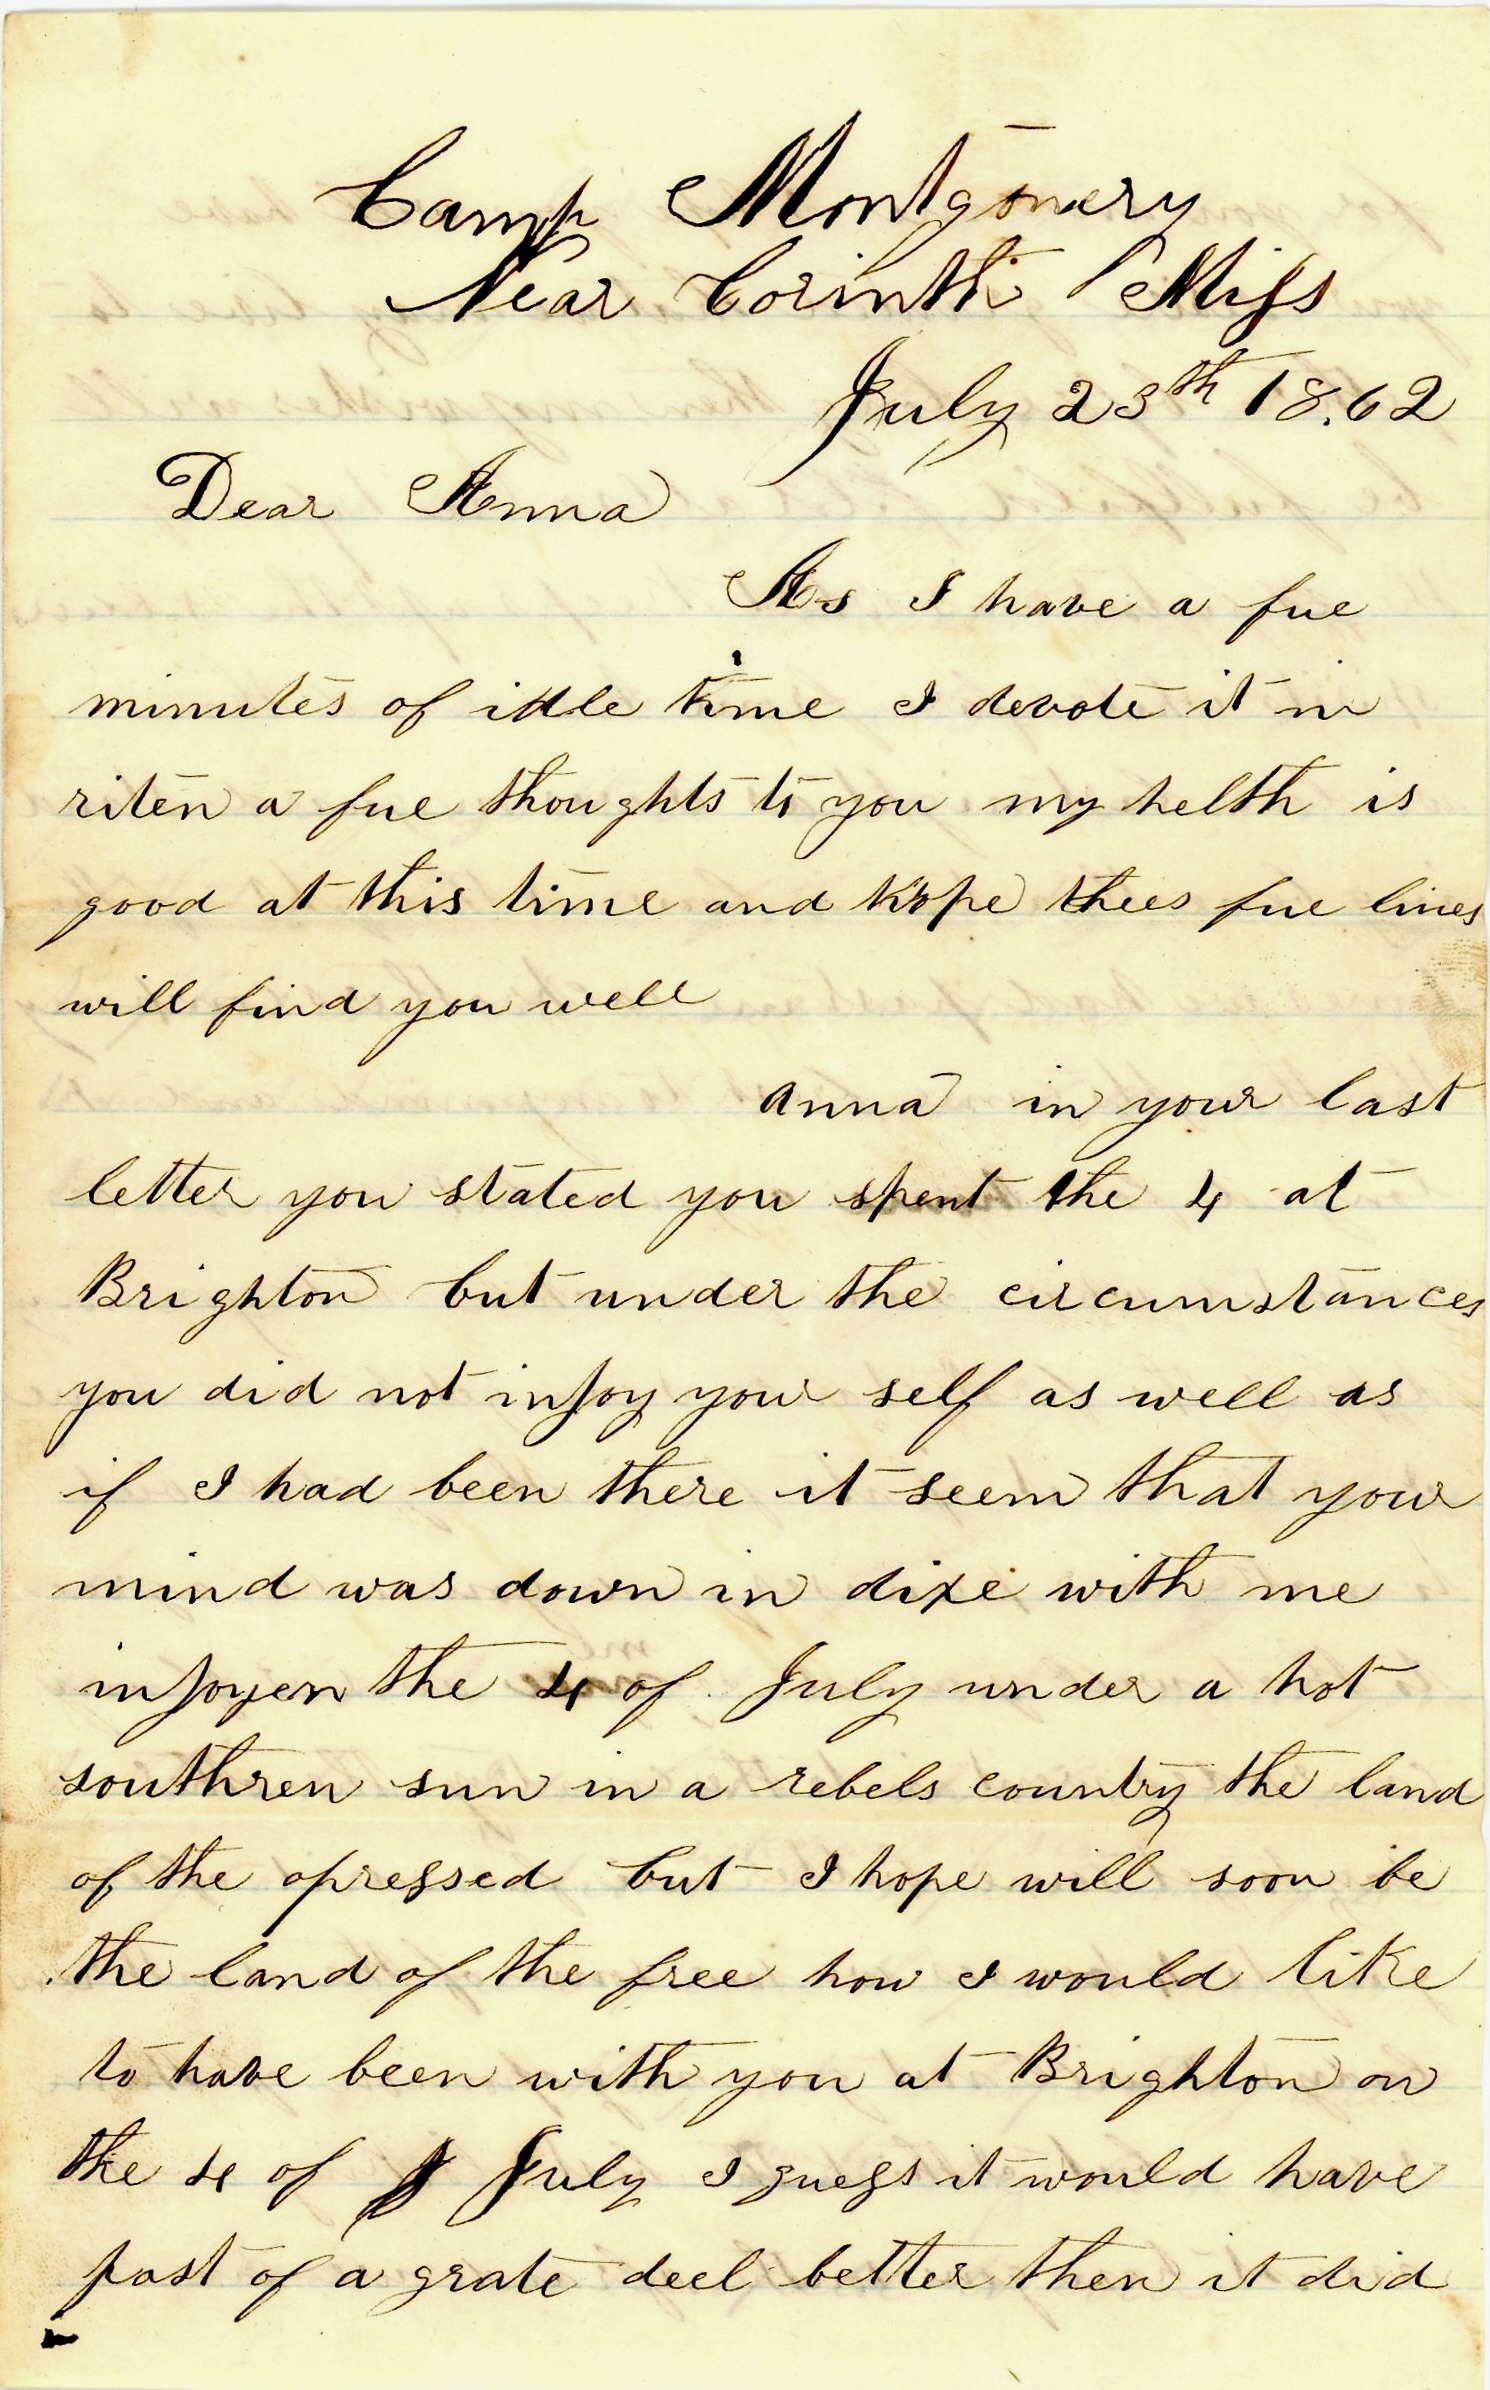 Camp Montgomery
Near Corinth Miss
July 23th 18.62
Dear Anna
As I have a fue
minutes of idle time I devote it in
riten a fue thoughts to you my helth is
good at this time and hope thees fue lines
will find you well
anna in your last
letter you stated you spent the 4 at
Brighton but under the circumstances
you did not injoy your self as well as
if I had been there it seem that your
mind was down in dixe with me
injoyen the 4 of July under a hot
southren sun in a rebels country the land
of the opressed but I hope will soon be
the land of the free how I would like
to have been with you at Brighton on
the 4 of J July I guess it would have
past of a grate deel better then it did